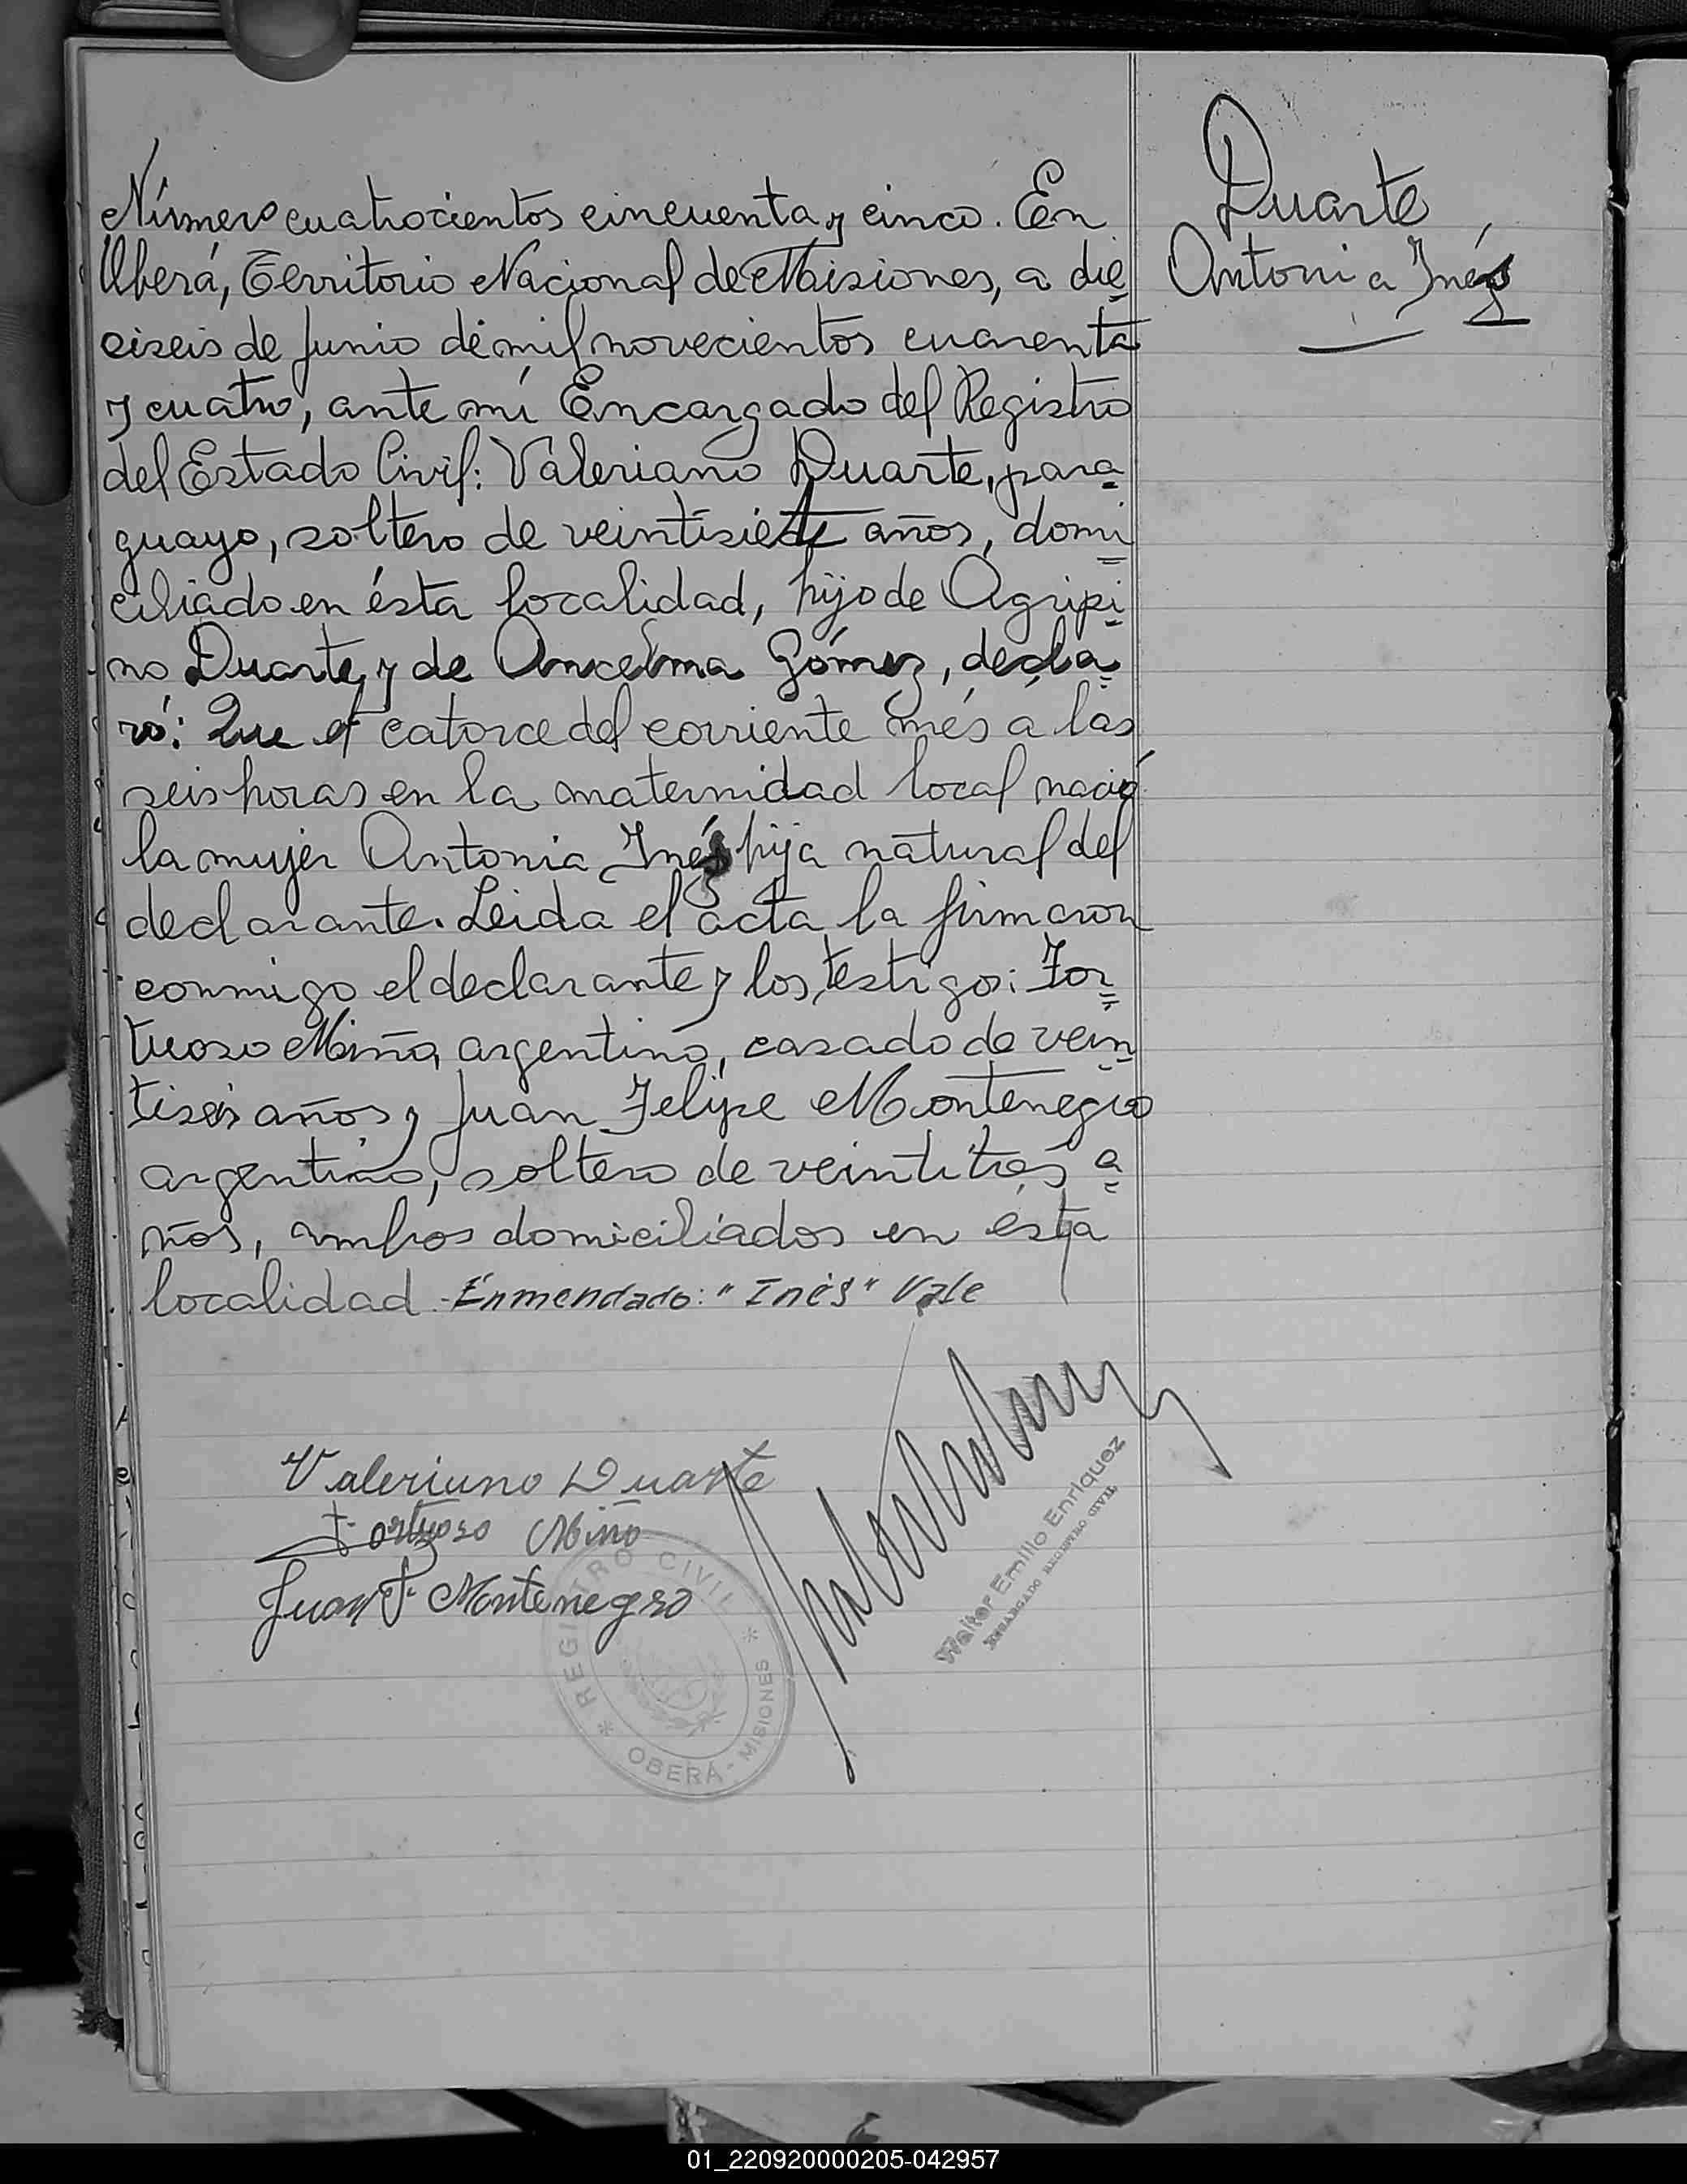 Número cuatrocientos cincuenta y cinco. En
Oberá, Territorio Nacional de Misiones, a die
ciseis de Junio de mil novecientos cuarenta
y cuatro, ante mí Encargado del Registro
del Estado Civil: Valeriano Duarte, para
guayo, soltero de veintisiete años, domi
ciliado en ésta localidad, hijo de Agripi
no Duarte y de Ancelma Gómez, decla
ró: Que el catorce del corriente més a las
seis horas en la maternidad local nació
la mujer Antonia Inés hija natural del
declarante. Leida el acta la firmaron
conmigo el declarante y los testigo: For
tuoso Miño, argentino, casado de vein
tiseis años y Juan Felipe Montenegro
argentino, soltero de veintitres a
ños, ambos domiciliados en esta
localidad - Enmendado: "Inés" Vale
Duarte
Antonia Inés
Valeriano Duarte
Fortuoso Miño
Juan F. Montenegro
Walter Emilio Enriquez
ENCARGADO REGISTRO CIVIL
* REGISTRO CIVIL *
OBERÁ - MISIONES
01_220920000205-042957